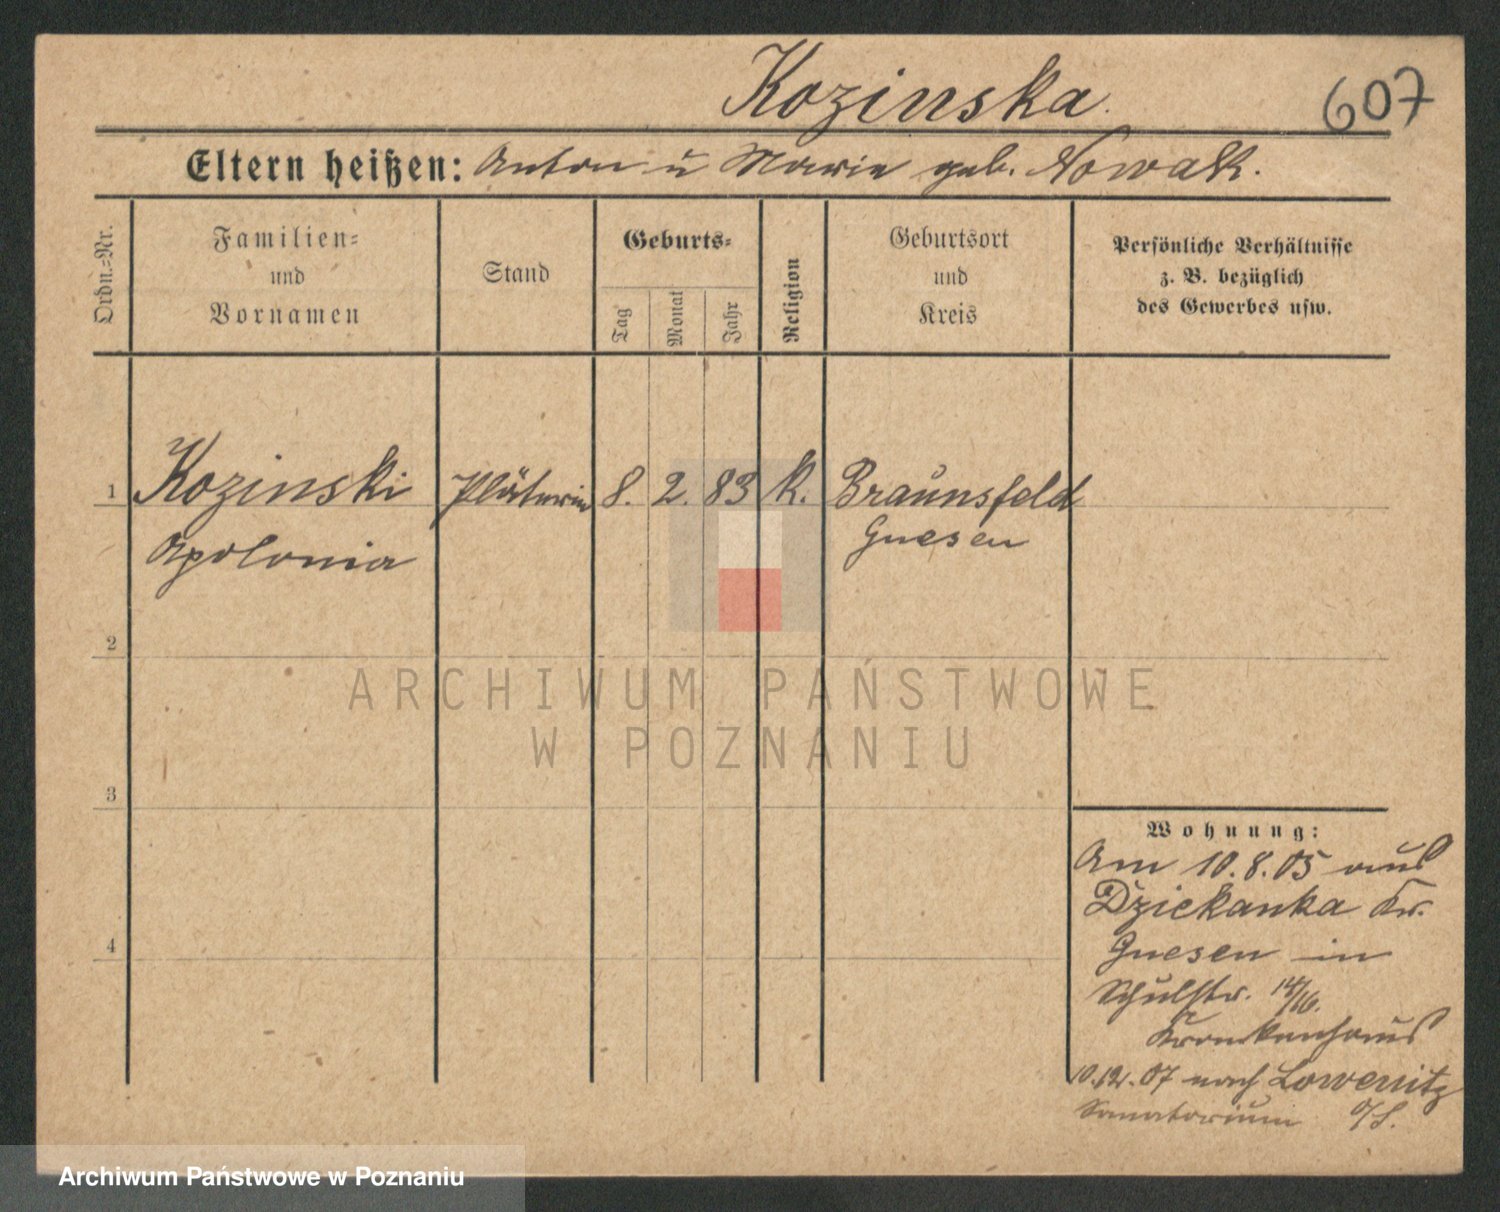 Kozinska.
607
Eltern heißen: Anton u Marie geb. Nowak.
Ordn.-Nr.
Familien-
und
Vornamen
Stand
Geburts-
Tag
Monat
Jahr
Religion
Geburtsort
und
Kreis
Persönliche Verhältnisse
z. B. bezüglich
des Gewerbes usw.
1
Kozinski
Apolonia
Plätterin
8.
2.
83
k.
Braunsfeld
Gnesen
2
3
4
Wohnung:
Am 10.8.05 aus
Dziekanka Kr.
Gnesen in
Schulstr. 14/16.
Krankenhaus
10.12.07 nach
Sanatorium O/S.
ARCHIWUM PAŃSTWOWE
W POZNANIU
Archiwum Państwowe w Poznaniu